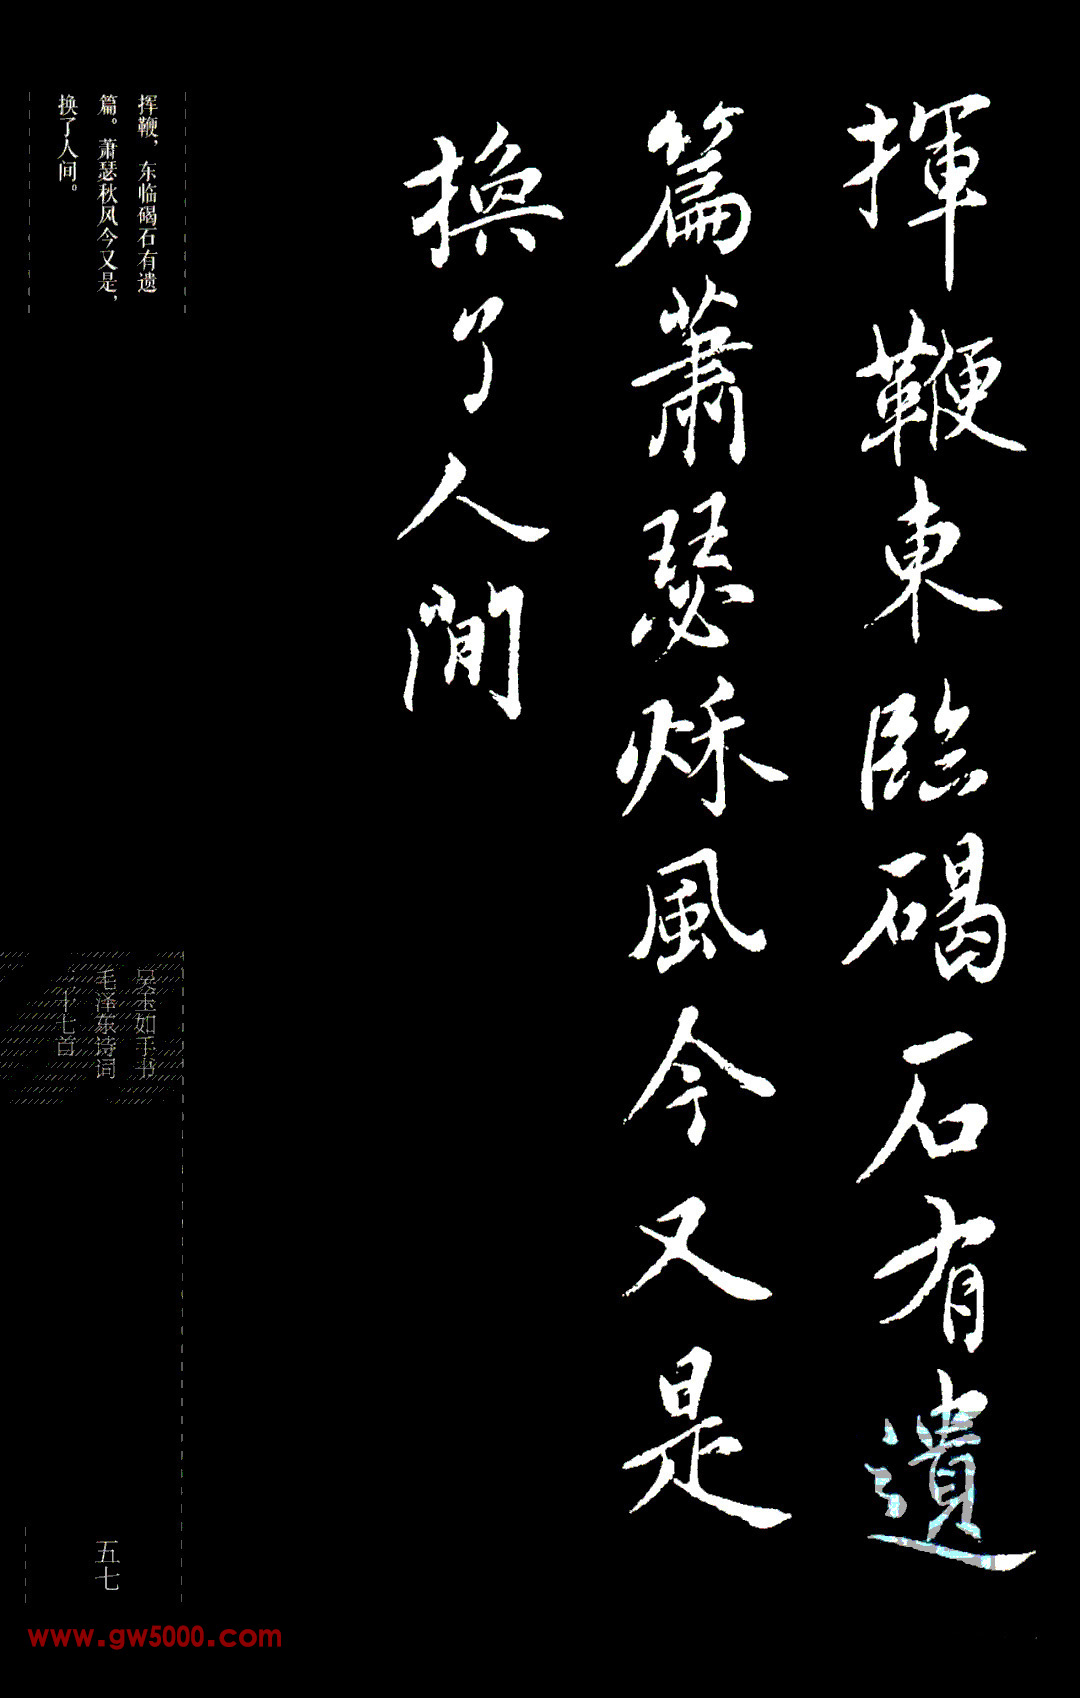 揮鞭東臨碣石有遺
篇蕭瑟秌風今又是
換了人間
挥鞭，东临碣石有遗
篇。萧瑟秋风今又是，
换了人间。
吴玉如手书
毛泽东诗词
二十七首
五七
www.gw5000.com